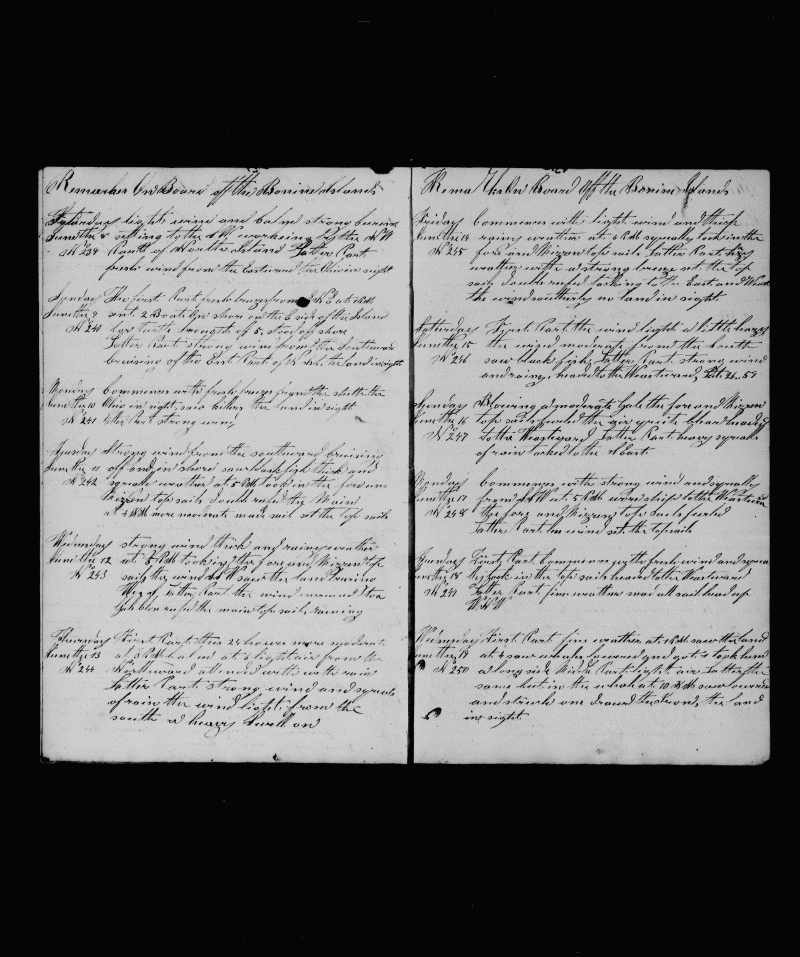 Remarks On Board off the Bonin Islands
Saturday light wind and calm strong
June the 8 setting to the N W working to the N W
No 239 Part of North Island Latter Part
fresh wind from the Eastward the in sight
Sunday The first Part fresh breeze from at
June the 9 sent 2 Boats on shore on the side of the Island
No 240 for turtle brought of 5, stood off shore
Latter Part strong wind from the Southward
cruising of the East Part of the land in sight
Monday Commences with fresh breeze from the South the
June the 10 in sight, saw killers the land in sight
No 241 latter Part strong wind
Tuesday Strong wind from the southward cruising
June the 11 off and in shore saw black fish thick and
No 242 squaly weather at 5 PM took in the fore and
Mizzen top sails double reefd the Main
at 4 AM more moderate made sail set the top sails
Wednesday strong wind thick and rainy weather
June the 12 at 5 PM took in the fore and Mizzen top
No 243 sails the wind at saw the land bearing
Latter Part the wind
Jib close reefd the main top sail, raining
Thursday First Part this 24 hours more moderate
June the 13 at 3 PM calm at 6 light air from the
No 244 Northward attended with with rain
Latter Part strong wind and squals
of rain the wind light from the
south a heavy Swell on
Remarks On Board Off the Bonin Islands
Friday Commences with light wind and thick
June the 14 rainy weather at 6 PM squaly took in the
No 245 fore and Mizzen top sails Latter Part
weather with a strong breeze set the top
sails double reefed tacking to the East and West
the wind no land in sight
Saturday First Part the wind light a little hazy
June the 15 the wind moderate from the South
No 246 saw black fish, Latter Part strong wind
and rainy, headed to the Westward, Lat 26..59
Sunday Blowing a moderate Gale the fore and Mizzen
June the 16 top sails furled the headed
No 247 to the Westward Latter Part heavy squals
of rain tacked to the East
Monday Commences with strong wind and squally
June the 17 from at 5 PM wore ship to the Westward
No 248 the fore and Mizzen top sails furled
Latter Part less wind set the topsails
Tuesday First Part Commences with fresh wind and
June the 18 took in the top sails headed to the Westward
No 249 Latter Part fine weather mad all sail head up
W N W
Wednesday First Part fine weather at 1 PM saw the land
June the 19 at 4 saw whales lowered and got 2 took them
No 250 a long side Middle Part light air Latter the
same but in the at 10 AM saw
and struck one the land
in sight